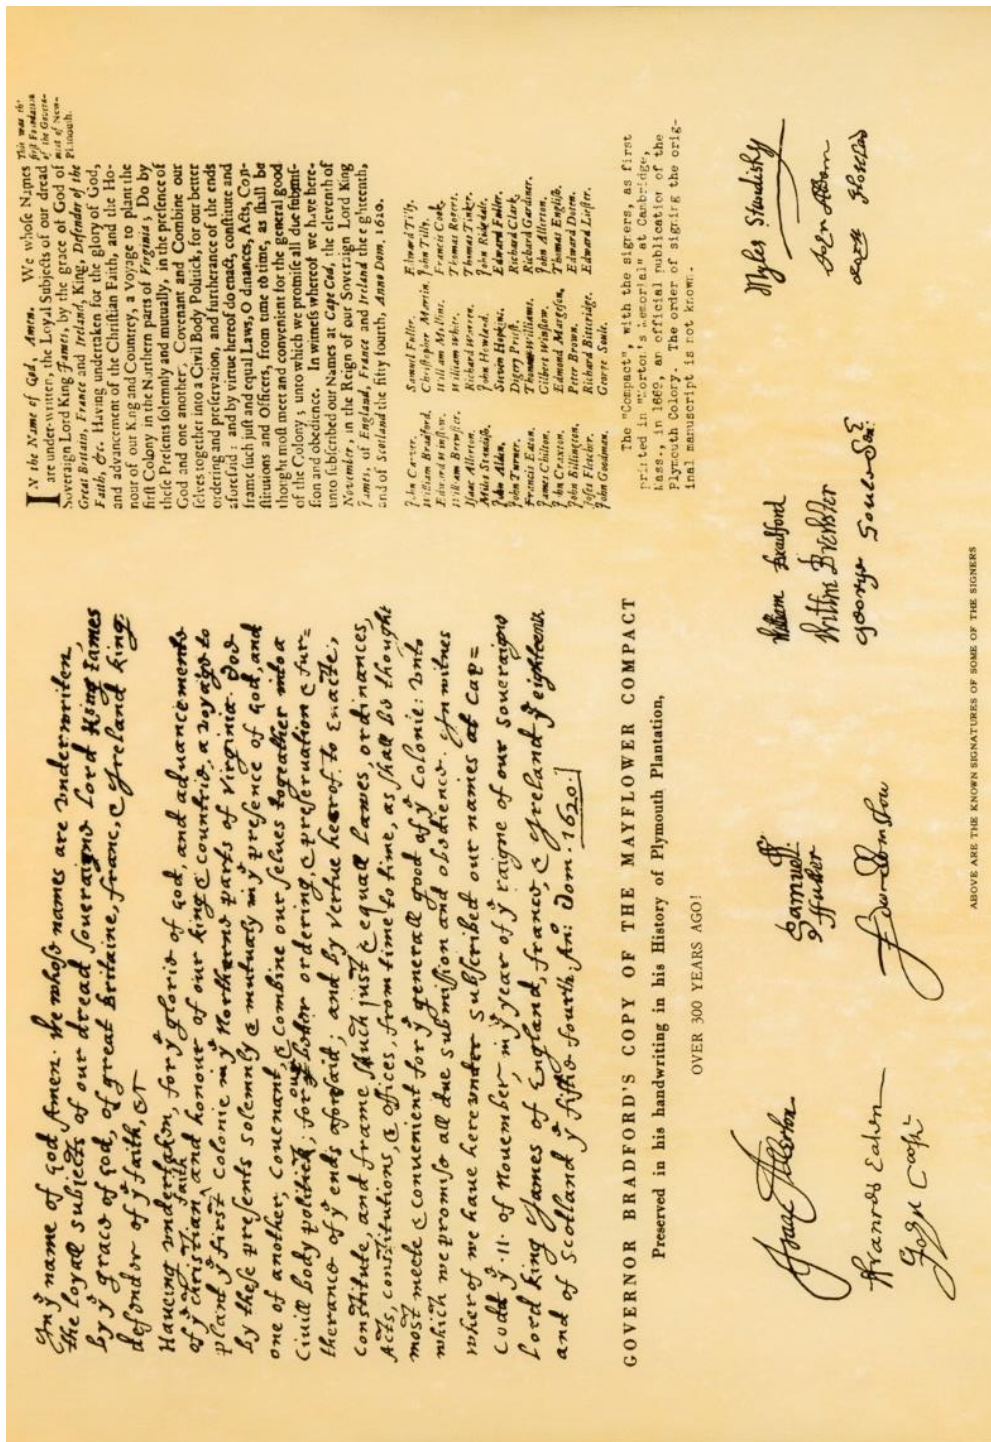 In yᵉ name of god Amen. We whose names are vnderwriten,
the loyall subjects of our dread soueraigne Lord King James
by yᵉ grace of god, of great Britaine, franc, & Ireland king,
defendor of yᵉ faith, &c
Haueing vndertaken, for yᵉ glorie of god, and aduancemente
of yᵉ christian faith and honour of our king & countrie, a voyage to
plant yᵉ first colonie in yᵉ Northerne parts of Virginia. Doe
by these presents solemnly & mutualy in yᵉ presence of god, and
one of another, couenant, & combine our selues togeather into a
Ciuill body politick; for our better ordering, & preseruation & fur=
therance of yᵉ ends aforesaid; and by vertue hearof to enacte,
constitute, and frame such just & equall Lawes, ordinances,
Acts, constitutions, & offices, from time to time, as shall be thought
most meete & conuenient for yᵉ generall good of yᵉ colonie: vnto
which we promise all due submission and obedience. In witnes
wherof we haue herevnder subscribed our names at Cap=
Codd yᵉ .11. of Nouember, in yᵉ year of yᵉ raigne of our soueraigne
Lord king James of England, france, & Ireland yᵉ eighteenth
and of Scotland yᵉ fiftie fourth. An: Dom. 1620.
IN the Name of God, Amen. We whose Names
are under-written, the Loyal Subjects of our dread
Soveraign Lord King James, by the grace of God of
Great Britain, France and Ireland, King, Defender of the
Faith, &c. Having undertaken for the glory of God,
and advancement of the Christian Faith, and the Ho-
nour of our King and Countrey, a Voyage to plant the
first Colony in the Northern parts of Virginia; Do by
these Presents solemnly and mutually, in the presence of
God and one another, Covenant and Combine our
selves together into a Civil Body Politick, for our better
ordering and preservation, and furtherance of the ends
aforesaid: and by virtue hereof do enact, constitute and
frame such just and equal Laws, Ordinances, Acts, Con-
stitutions and Officers, from time to time, as shall be
thought most meet and convenient for the general good
of the Colony; unto which we promise all due submis-
sion and obedience. In witness whereof we have here-
unto subscribed our Names at Cape Cod, the eleventh of
November, in the Reign of our Soveraign Lord King
James, of England, France and Ireland the eighteenth,
and of Scotland the fifty fourth, Anno Dom. 1620.
This was the
first Foundation
of the Govern-
ment of New-
Plimouth.
John Carver.
William Bradford.
Edward Winslow.
William Brewster.
Isaac Allerton.
Miles Standish,
John Alden,
John Turner.
Francis Eaton.
James Chilton.
John Craxton.
John Billington,
Joses Fletcher.
John Goodman.
Samuel Fuller.
Christopher Martin.
William Mullins.
William White.
Richard Warren.
John Howland.
Steven Hopkins,
Digery Priest.
Thomas Williams.
Gilbert Winslow.
Edmund Margeson,
Peter Brown.
Richard Bitteridge.
George Soule.
Edward Tilly.
John Tilly.
Francis Cook.
Thomas Rogers.
Thomas Tinker.
John Ridgdale.
Edward Fuller.
Richard Clark,
Richard Gardiner.
John Allerton.
Thomas English.
Edward Doten.
Edward Liester.
The "Compact", with the signers, as first
printed in "Morton's Memorial" at Cambridge,
Mass., in 1669, an official publication of the
Plymouth Colony. The order of signing the orig-
inal manuscript is not known.
GOVERNOR BRADFORD'S COPY OF THE MAYFLOWER COMPACT
Preserved in his handwriting in his History of Plymouth Plantation,
OVER 300 YEARS AGO!
Isaac Allerton
Frances Eaton
Samuel Fuller
William Bradford
William Brewster
George Soule
Myles Standish
John Alden
ABOVE ARE THE KNOWN SIGNATURES OF SOME OF THE SIGNERS